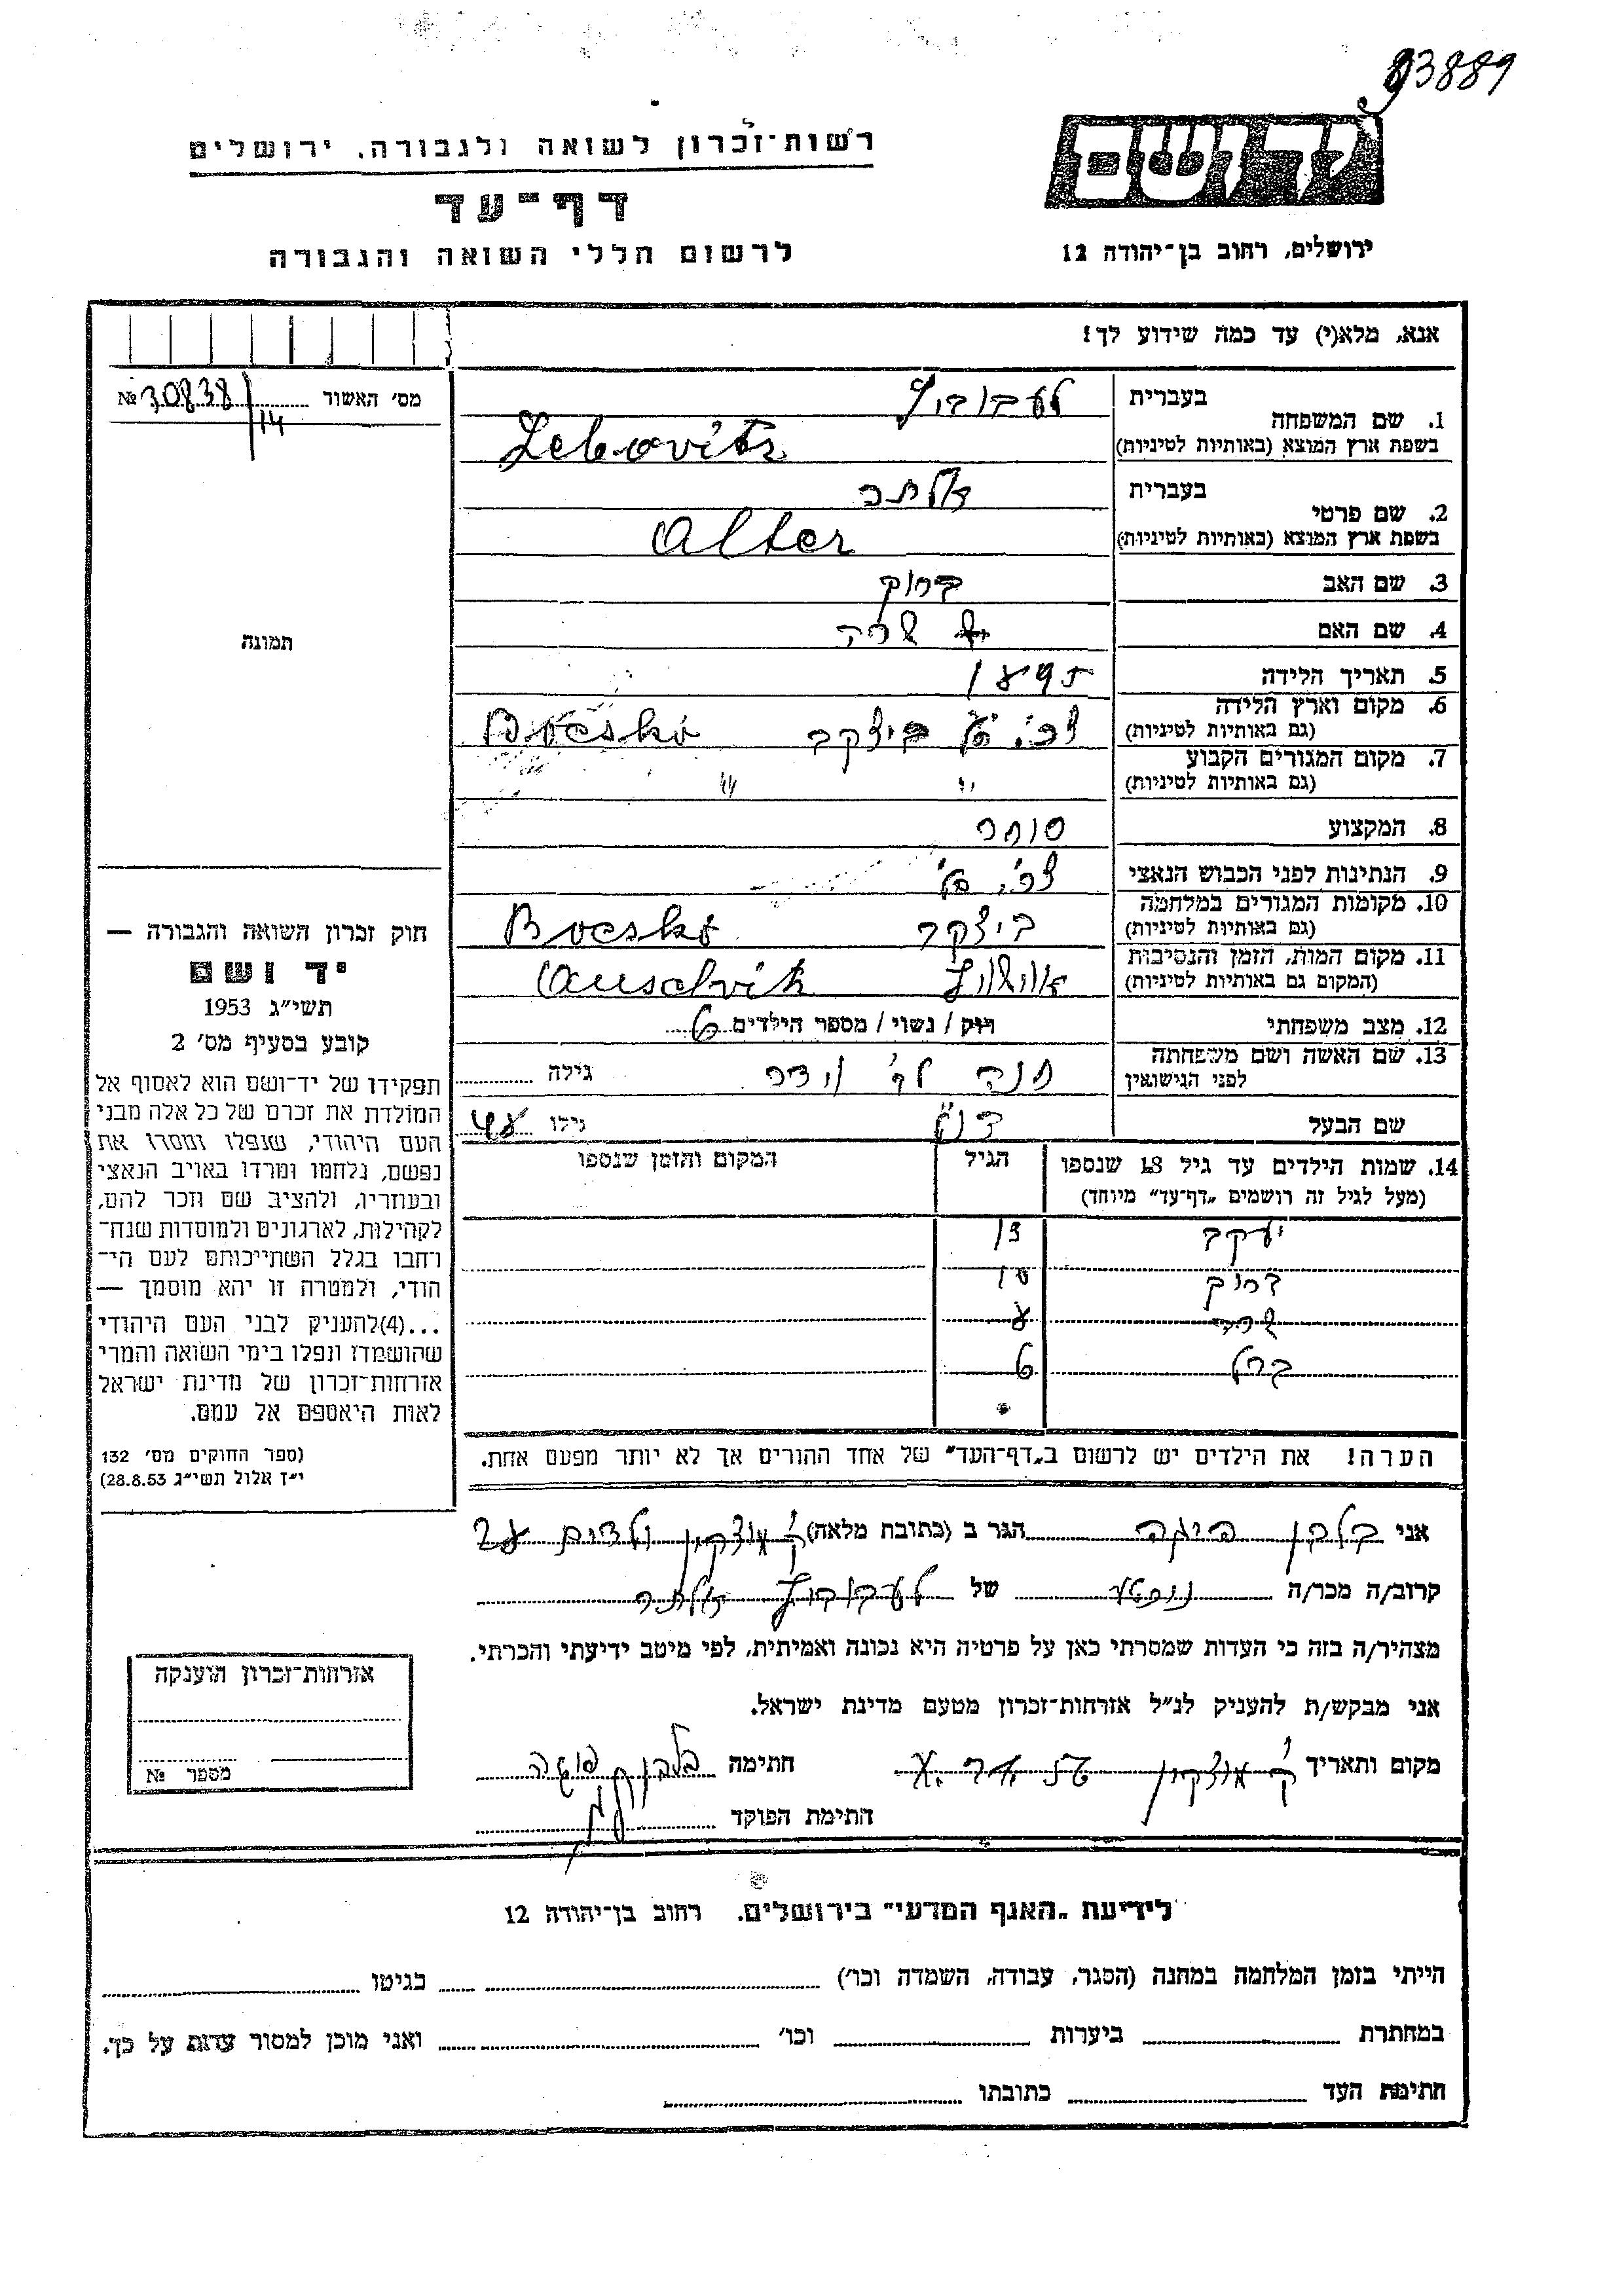 83889
ידושם
רשות־זכרון לשואה ולגבורה, ירושלים
דף־עד
לרשום חללי השואה והגבורה
ירושלים, רחוב בן־יהודה 12
אנא, מלא(י) עד כמה שידוע לך!
מס׳ האשור № 30838/14
תמונה
1. שם המשפחה בעברית לעבוביץ
בשפת ארץ המוצא (באותיות לטיניות) Lebovits
2. שם פרטי בעברית אלתר
בשפת ארץ המוצא (באותיות לטיניות) Alter
3. שם האב ברוך
4. שם האם שרה
5. תאריך הלידה
6. מקום וארץ הלידה
(גם באותיות לטיניות) Bocskó
7. מקום המגורים הקבוע
(גם באותיות לטיניות) " "
8. המקצוע סוחר
9. הנתינות לפני הכבוש הנאצי
10. מקומות המגורים במלחמה
(גם באותיות לטיניות) Bocskó
11. מקום המות, הזמן והנסיבות
(המקום גם באותיות לטיניות) אושוויץ Auschvitz
12. מצב משפחתי רווק / נשוי / מספר הילדים
13. שם האשה ושם משפחתה
לפני הנישואין חנה גילה
שם הבעל גילו
14. שמות הילדים עד גיל 18 שנספו הגיל המקום והזמן שנספו
(מעל לגיל זה רושמים „דף־עד״ מיוחד)
יעקב
ברוך
שרה
הערה! את הילדים יש לרשום ב„דף־העד״ של אחד ההורים אך לא יותר מפעם אחת.
חוק זכרון השואה והגבורה —
יד ושם
תשי״ג 1953
קובע בסעיף מס׳ 2
תפקידו של יד־ושם הוא לאסוף אל
המולדת את זכרם של כל אלה מבני
העם היהודי, שנפלו ומסרו את
נפשם, נלחמו ומרדו באויב הנאצי
ובעוזריו, ולהציב שם וזכר להם,
לקהילות, לארגונים ולמוסדות שנח־
רחבו בגלל השתייכותם לעם הי־
הודי, ולמטרה זו יהא מוסמך —
...(4)להעניק לבני העם היהודי
שהושמדו ונפלו בימי השואה והמרי
אזרחות־זכרון של מדינת ישראל
לאות היאספם אל עמם.
(ספר החוקים מס׳ 132
י״ז אלול תשי״ג 28.8.53)
אני הגר ב (כתובת מלאה)
קרוב/ה מכר/ה של לעבוביץ אלתר
מצהיר/ה בזה כי העדות שמסרתי כאן על פרטיה היא נכונה ואמיתית, לפי מיטב ידיעתי והכרתי.
אני מבקש/ת להעניק לנ״ל אזרחות־זכרון מטעם מדינת ישראל.
מקום ותאריך חתימה
חתימת הפוקד
אזרחות־זכרון הוענקה
מספר №
לידיעת „האגף המדעי״ בירושלים. רחוב בן־יהודה 12
הייתי בזמן המלחמה במחנה (הסגר, עבודה, השמדה וכו׳) בגיטו
במחתרת ביערות וכו׳ ואני מוכן למסור עדות על כך.
חתימת העד כתובתו